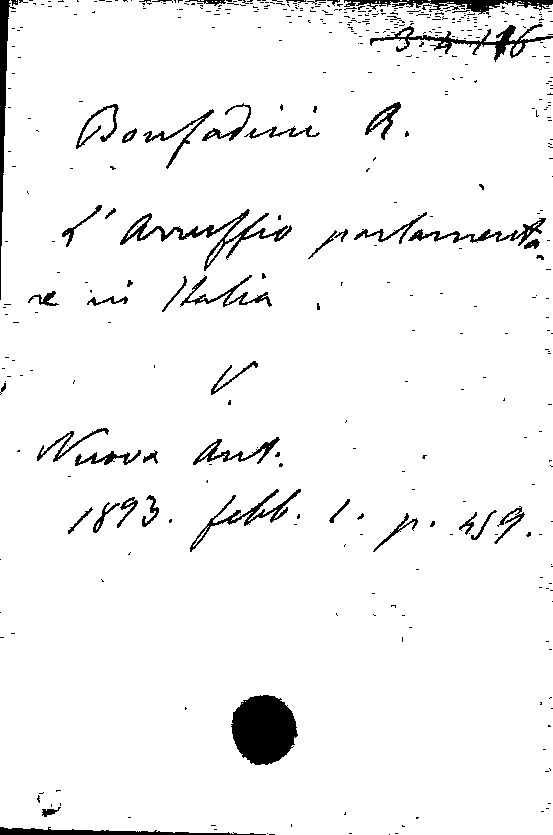 3.4.116
Bonfadini R.
L' Arruffio parlamenta
re in Italia.
V.
Nuova Ant.
1893. febb. 1. p. 459.